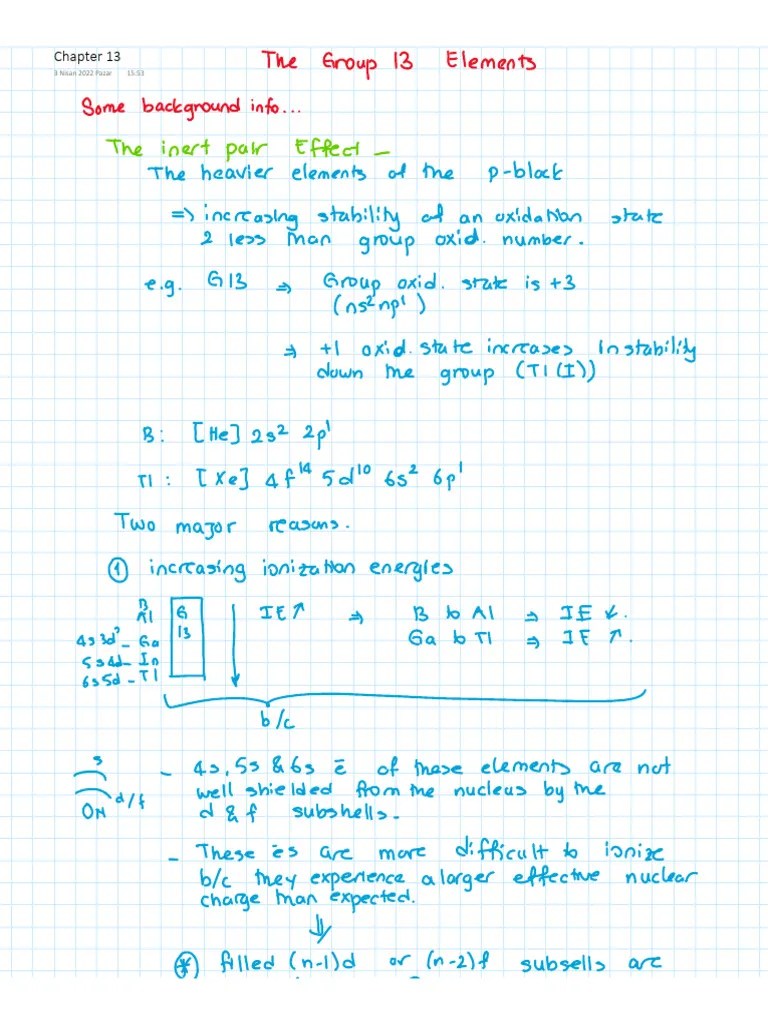 Chapter 13
3 Nisan 2022 Pazar 15:53
The Group 13 Elements
Some background info...
The inert pair Effect –
The heavier elements of the p-block
=> increasing stability of an oxidation state
2 less than group oxid. number.
e.g. G13 => Group oxid. state is +3
(ns² np¹)
=> +1 oxid. state increases in stability
down the group (Tl(I))
B: [He] 2s² 2p¹
Tl: [Xe] 4f¹⁴ 5d¹⁰ 6s² 6p¹
Two major reasons.
① increasing ionization energies
B
Al
4s3d – Ga
5s4d – In
6s5d – Tl
G
13
IE ↑ => B to Al => IE ↓.
Ga to Tl => IE ↑.
b/c
s
d/f
– 4s, 5s & 6s ē of these elements are not
well shielded from the nucleus by the
d & f subshells.
– These ēs are more difficult to ionize
b/c they experience a larger effective nuclear
charge than expected.
⇓
* filled (n-1)d or (n-2)f subsells are